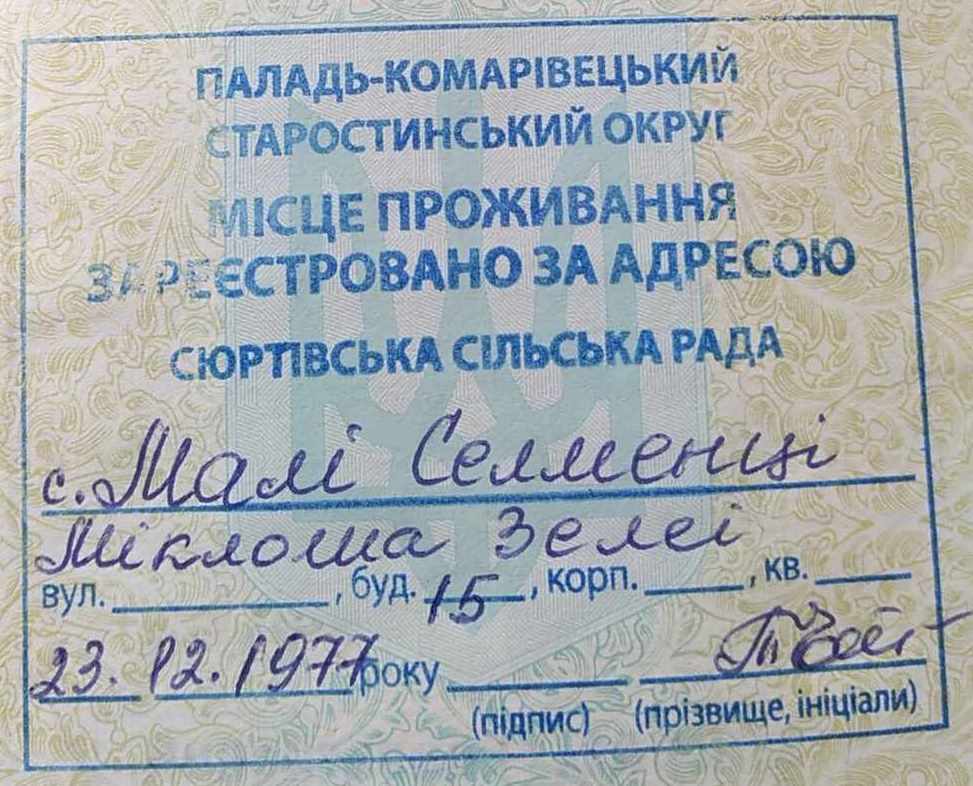 ПАЛАДЬ-КОМАРІВЕЦЬКИЙ
СТАРОСТИНСЬКИЙ ОКРУГ
МІСЦЕ ПРОЖИВАННЯ
ЗАРЕЄСТРОВАНО ЗА АДРЕСОЮ
СЮРТІВСЬКА СІЛЬСЬКА РАДА
с. Малі Селменці
Міклоша Зелеі
вул. , буд. 15 , корп. , кв.
23. 12. 1977 року
(підпис) (прізвище, ініціали)